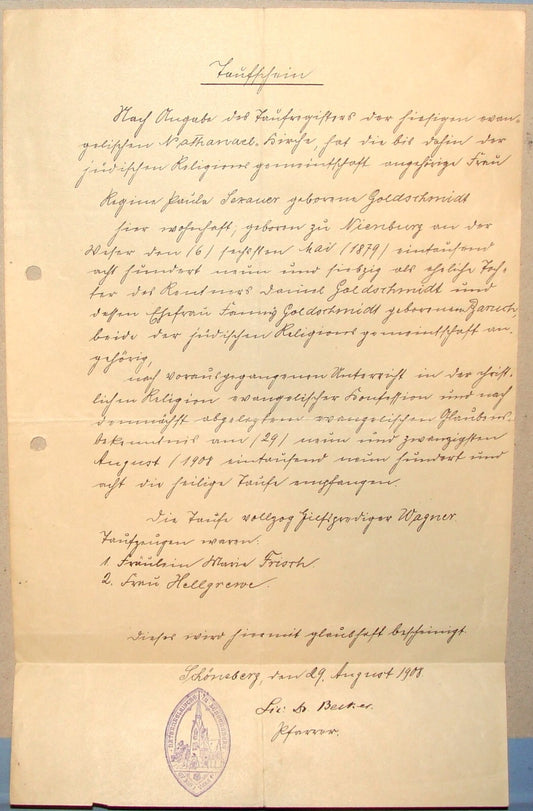 Taufschein
Nach Angabe des Taufregisters der hiesigen evan-
gelischen Nathanael-Kirche, hat die bis dahin der
jüdischen Religionsgemeintschaft angehörige Frau
Regine Paula Lexauer geborene Goldschmidt
hier wohnhaft, geboren zu Nienburg an der
Weser den (6) sechsten Mai (1879) eintausend
acht hundert neun und siebzig als eheliche Toch-
ter des Rentners Daniel Goldschmidt und
dessen Ehefrau Fanny Goldschmidt geborenen Baruch,
beide der jüdischen Religionsgemeintschaft an-
gehörig,
nach vorausgegangenen Unterricht in der christ-
lichen Religion evangelischer Konfession und nach
demnächst abgelegtem evangelischen Glaubens-
bekenntnis am (29) neun und zwanzigsten
August (1908 eintausend neun hundert und
acht die heilige Taufe empfangen.
Die Taufe vollzog Hilfsprediger Wagner.
Taufzeugen waren:
1. Fräulein Marie Frisch.
2. Frau Hellgrewe.
Dieses wird hiermit glaubhaft bescheinigt
Schöneberg, den 29. August 1908
Lic. Dr. Becker.
Pfarrer.